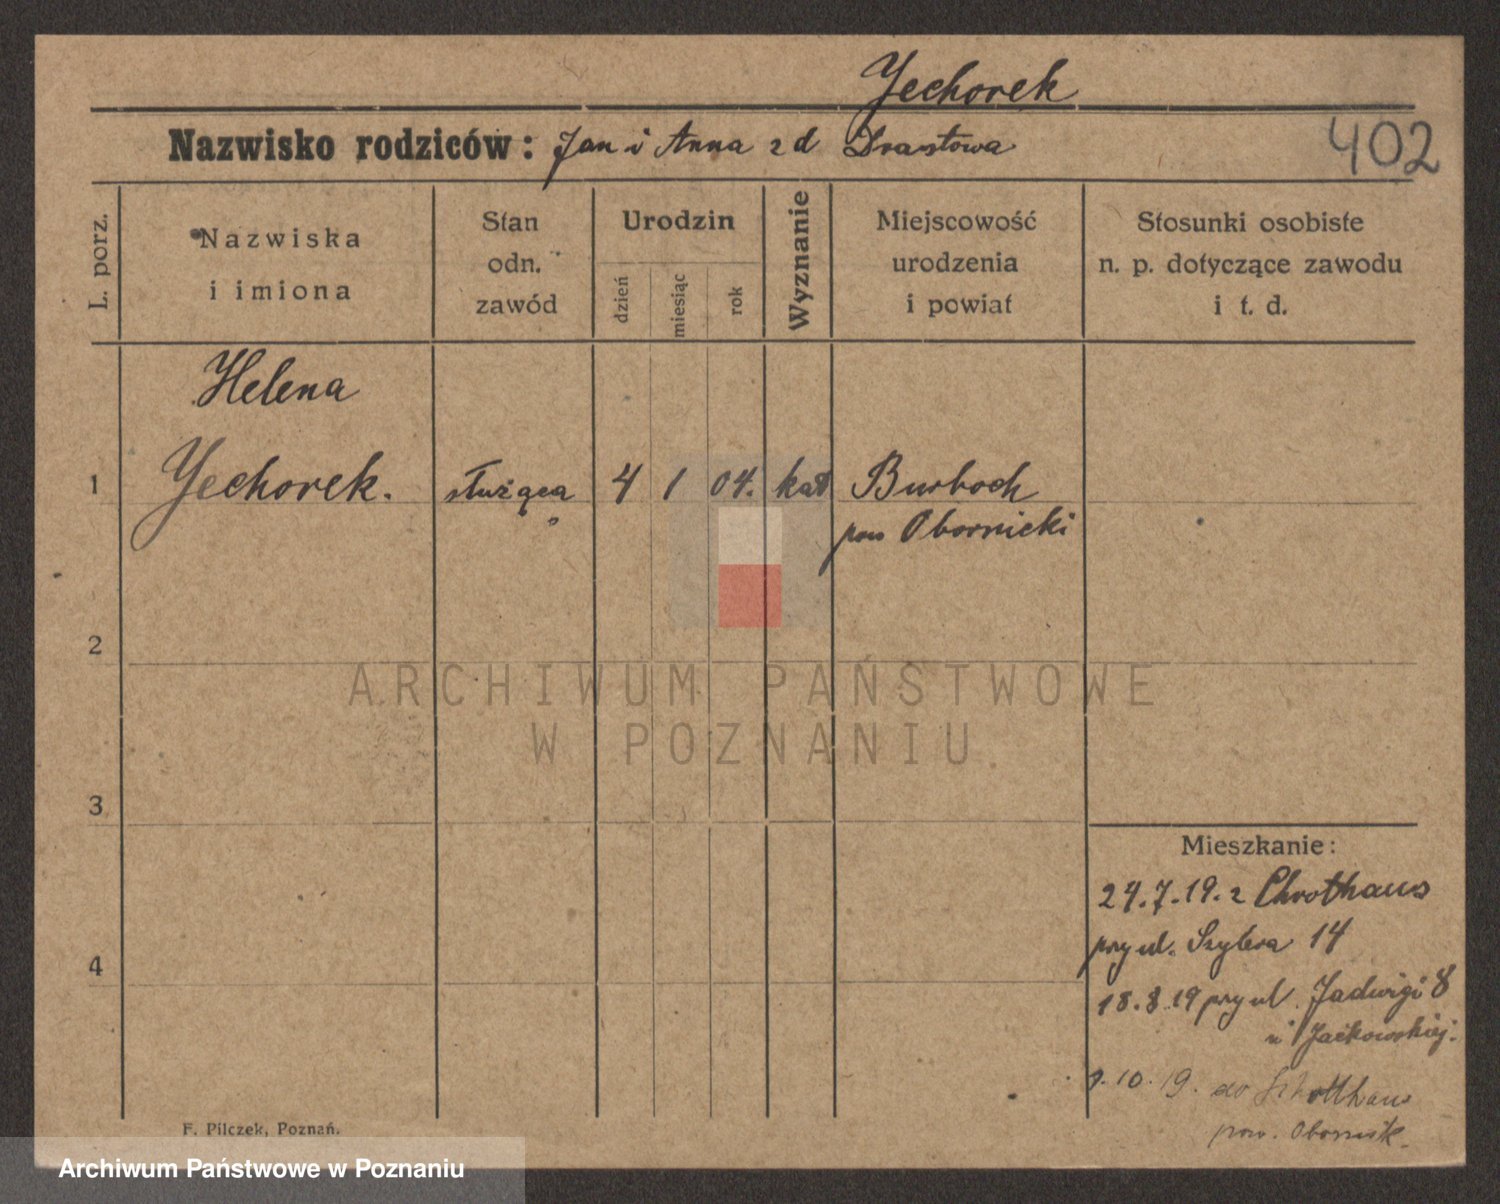 Yechorek
Nazwisko rodziców: Jan i Anna z d Drastowa
402
L. porz.
Nazwiska
i imiona
Stan
odn.
zawód
Urodzin
dzień
miesiąc
rok
Wyznanie
Miejscowość
urodzenia
i powiat
Stosunki osobiste
n. p. dotyczące zawodu
i t. d.
Helena
1 Yechorek. służąca 4 1 04. kat Burboch
pow Obornicki
2
ARCHIWUM PAŃSTWOWE
W POZNANIU
3
Mieszkanie:
24.7.19. z Chrothaus
przy ul. Szylera 14
4
18.8.19 przy ul. Jadwigi 8
u Jackowskiej.
1.10.19. do Schrotthaus
pow. Obornik.
F. Pilczek, Poznań.
Archiwum Państwowe w Poznaniu